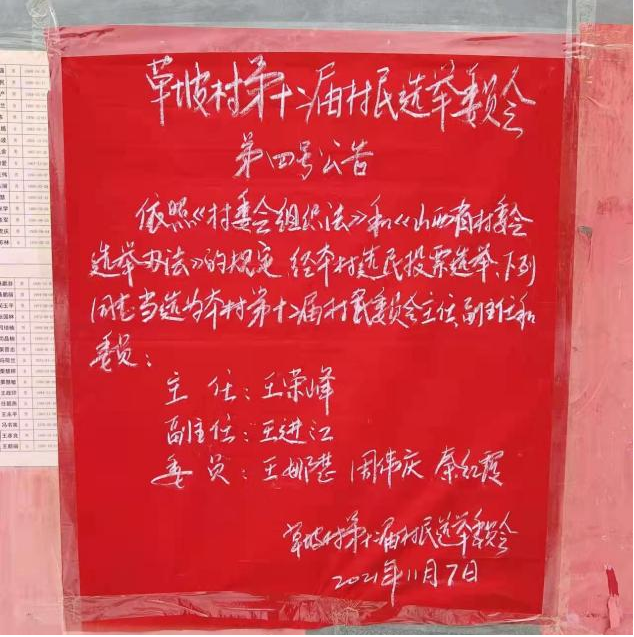 草坡村第十二届村民选举委员会
第四号公告
依照《村委会组织法》和《山西省村委会
选举办法》的规定,经本村选民投票选举,下列
同志当选为本村第十二届村民委员会主任、副主任和
委员:
主 任:王荣峰
副主任:王进江
委 员:王娜 周伟庆 秦红霞
草坡村第十二届村民选举委员会
2021年11月7日